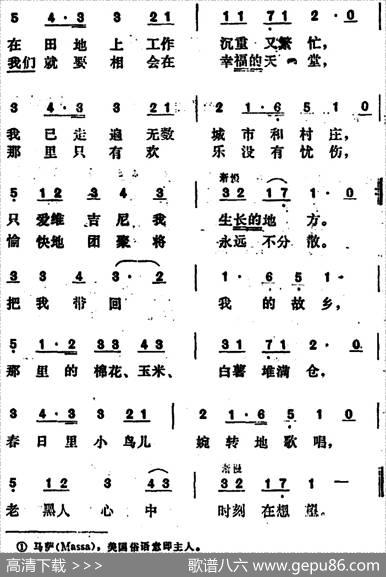 5 4·3 3 21 | 11 71 2·0 |
在田地上工作 沉重又繁忙,
我们就要相会在 幸福的天堂,
3 4·3 3 21 | 2 1·6 5 1 0
我已走遍无数 城市和村庄,
那里只有欢 乐没有忧伤,
渐慢
5 12 3 4 3 | 32 17 1·0
只爱维吉尼我 生长的地方。
愉快地团聚将 永远不分散。
3 3 4 3·2 | 1·6 5 1
把我带回 我的故乡,
5 1·2 33 43 | 31 71 2·0
那里的棉花、玉米、 白薯堆满仓,
3 4·3 3 21 | 2 1·6 5 1 0
春日里小鸟儿 婉转地歌唱,
渐慢
5 12 3 43 | 32 17 1 —
老黑人心中 时刻在想望。
① 马萨(Massa),美国俗语意即主人。
高清下载 >>> 歌谱八六 www.gepu86.com